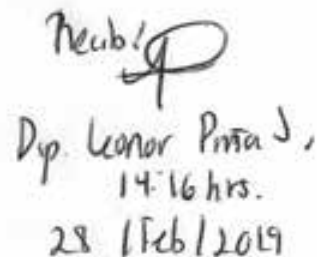 Recibí
Dip. Leonor Piña J,
14:16 hrs.
28 /Feb/2019